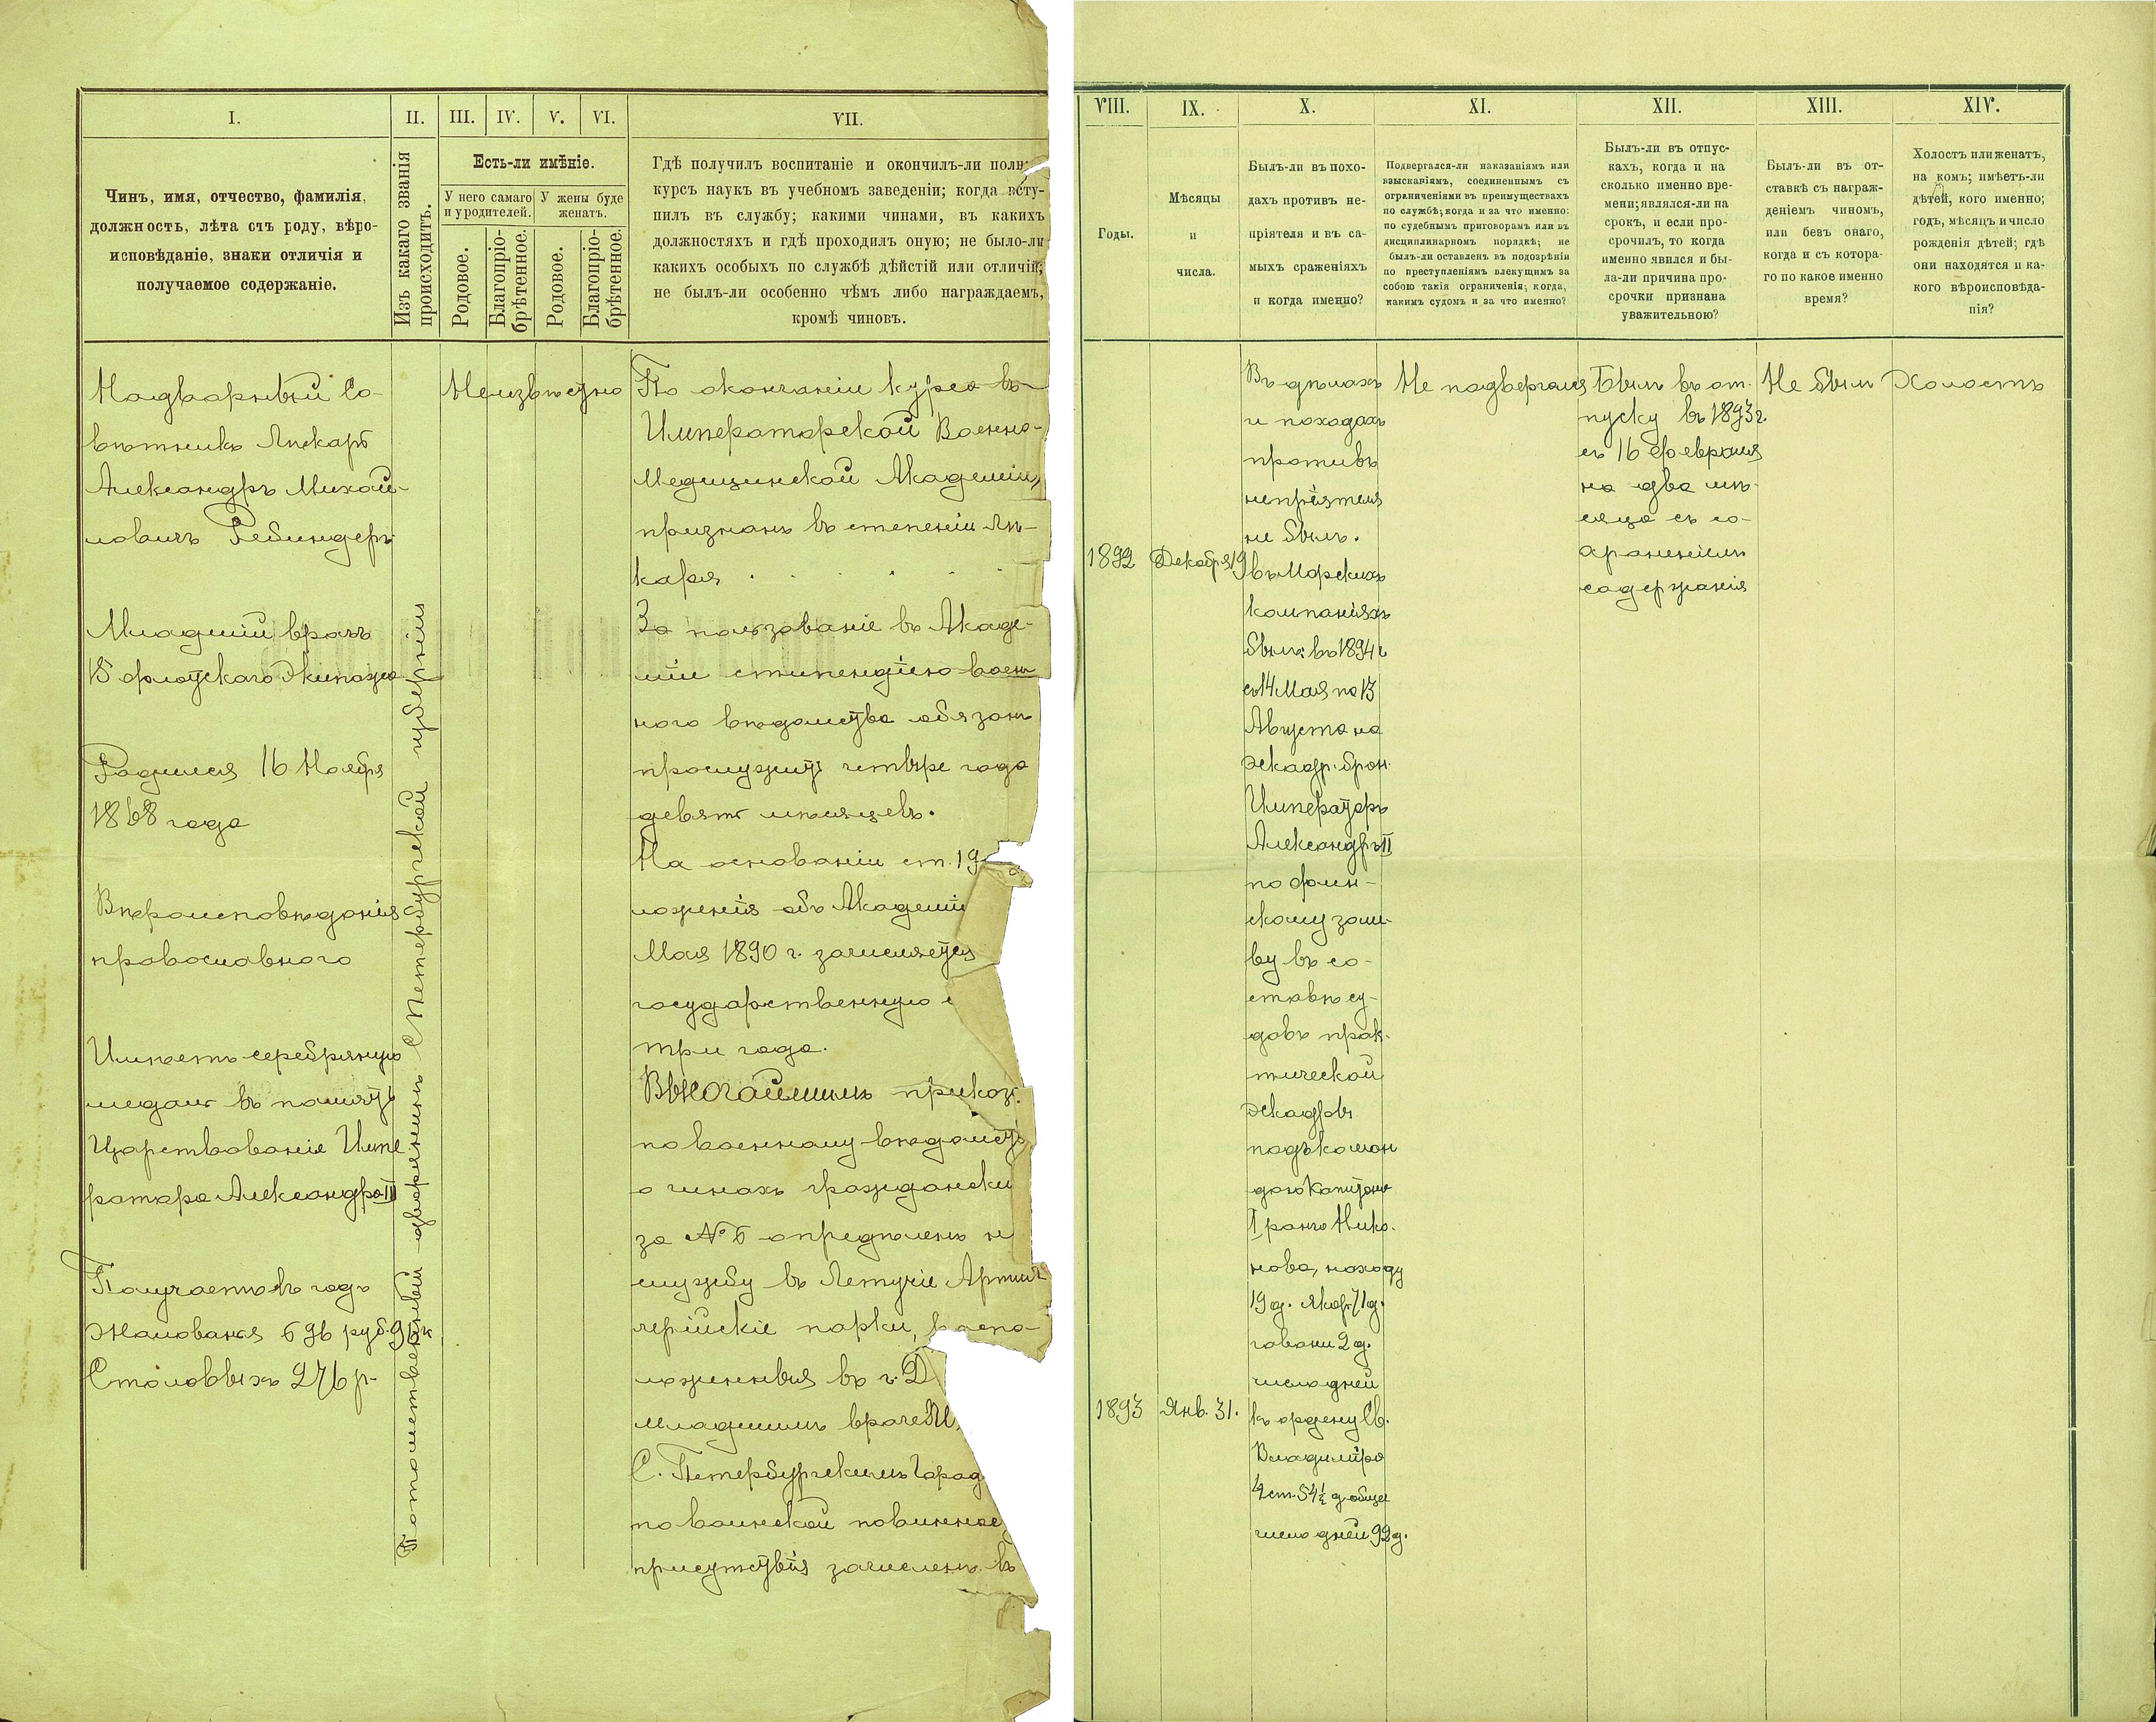 I.
Чинъ, имя, отчество, фамилія,
должность, лѣта отъ роду, вѣро-
исповѣданіе, знаки отличія и
получаемое содержаніе.
II.
Изъ какаго званія
происходитъ.
III.
IV.
V.
VI.
Есть-ли имѣніе.
У него самаго
и у родителей.
У жены буде
женатъ.
Родовое.
Благопріо-
брѣтенное.
Родовое.
Благопріо-
брѣтенное.
VII.
Гдѣ получилъ воспитаніе и окончилъ-ли полн
курсъ наукъ въ учебномъ заведеніи; когда всту-
пилъ въ службу; какими чинами, въ какихъ
должностяхъ и гдѣ проходилъ оную; не было-ли
какихъ особыхъ по службѣ дѣйстій или отличій;
не былъ-ли особенно чѣмъ либо награждаемъ,
кромѣ чиновъ.
Надворный Со-
вѣтникъ Лѣкарь
Александръ Михай-
ловичъ Ребиндеръ
Младшій врачъ
18 флотскаго Экипажа
Родился 16 Ноября
1868 года
Вѣроисповѣданія
православнаго
Имѣетъ серебряную
медаль въ память
Царствованія Импе
ратора Александра III
Получаетъ въ годъ
Жалованья 696 руб. 96 к
Столовыхъ 276 р.
Потомственный дворянинъ С Петербургской губерніи
Неизвѣстно
По окончаніи курса въ
Императорской Военно-
Медицинской Академіи,
признанъ въ степени лѣ-
каря . . . . . .
За пользованіе въ Акаде-
міи стипендіею воен
наго вѣдомства обязанъ
прослужить четыре года
девять мѣсяцевъ.
На основаніи ст. 19
ложенія объ Академіи
Мая 1890 г. зачисляется
государственную
три года.
Высочайшимъ приказ.
по военному вѣдомств
о чинахъ граждански
за № 6 опредѣленъ н
службу въ Летучіе Артил
лерійскіе парки, распо-
ложенные въ г. Д
младшимъ врачемъ
С. Петербургскимъ Город
по воинской повиннос
присутствія зачисленъ въ
VIII.
Годы.
IX.
Мѣсяцы
и
числа.
X.
Былъ-ли въ похо-
дахъ противъ не-
пріятеля и въ са-
мыхъ сраженіяхъ
и когда именно?
XI.
Подвергался-ли наказаніямъ или
взысканіямъ, соединеннымъ съ
ограниченіями въ преимуществахъ
по службѣ; когда и за что именно:
по судебнымъ приговорамъ или въ
дисциплинарномъ порядкѣ; не
былъ-ли оставленъ въ подозрѣніи
по преступленіямъ влекущимъ за
собою такія ограниченія; когда,
какимъ судомъ и за что именно?
XII.
Былъ-ли въ отпус-
кахъ, когда и на
сколько именно вре-
мени; являлся-ли на
срокъ, и если про-
срочилъ, то когда
именно явился и бы-
ла-ли причина про-
срочки признана
уважительною?
XIII.
Былъ-ли въ от-
ставкѣ съ награж-
деніемъ чиномъ,
или безъ онаго,
когда и съ котора-
го по какое именно
время?
XIV.
Холостъ или женатъ,
на комъ; имѣетъ-ли
дѣтей, кого именно;
годъ, мѣсяцъ и число
рожденія дѣтей; гдѣ
они находятся и ка-
кого вѣроисповѣда-
нія?
1892
Декабря 19
1893
Янв. 31.
Въ дѣлахъ
и походахъ
противъ
непріятеля
не былъ.
въ Морскихъ
компаніяхъ
былъ: въ 1894 г
съ 14 Мая по 13
Августа на
эскадр. брон.
Императоръ
Александръ II
по фин-
скому зали-
ву въ со-
ставѣ су-
довъ прак-
тической
эскадры
подъ коман
дою Капитана
I ранга Нико-
нова, на ходу
19 д. якор. 71 д.
гавани 2 д.
число дней
къ ордену Св.
Владиміра
4 ст. 54 ½ д общее
число дней 92 д.
Не подвергался
Былъ въ от-
пуску въ 1893 г.
съ 16 Февраля
на два мѣ-
сяца съ со-
храненіемъ
содержанія
Не былъ
Холостъ